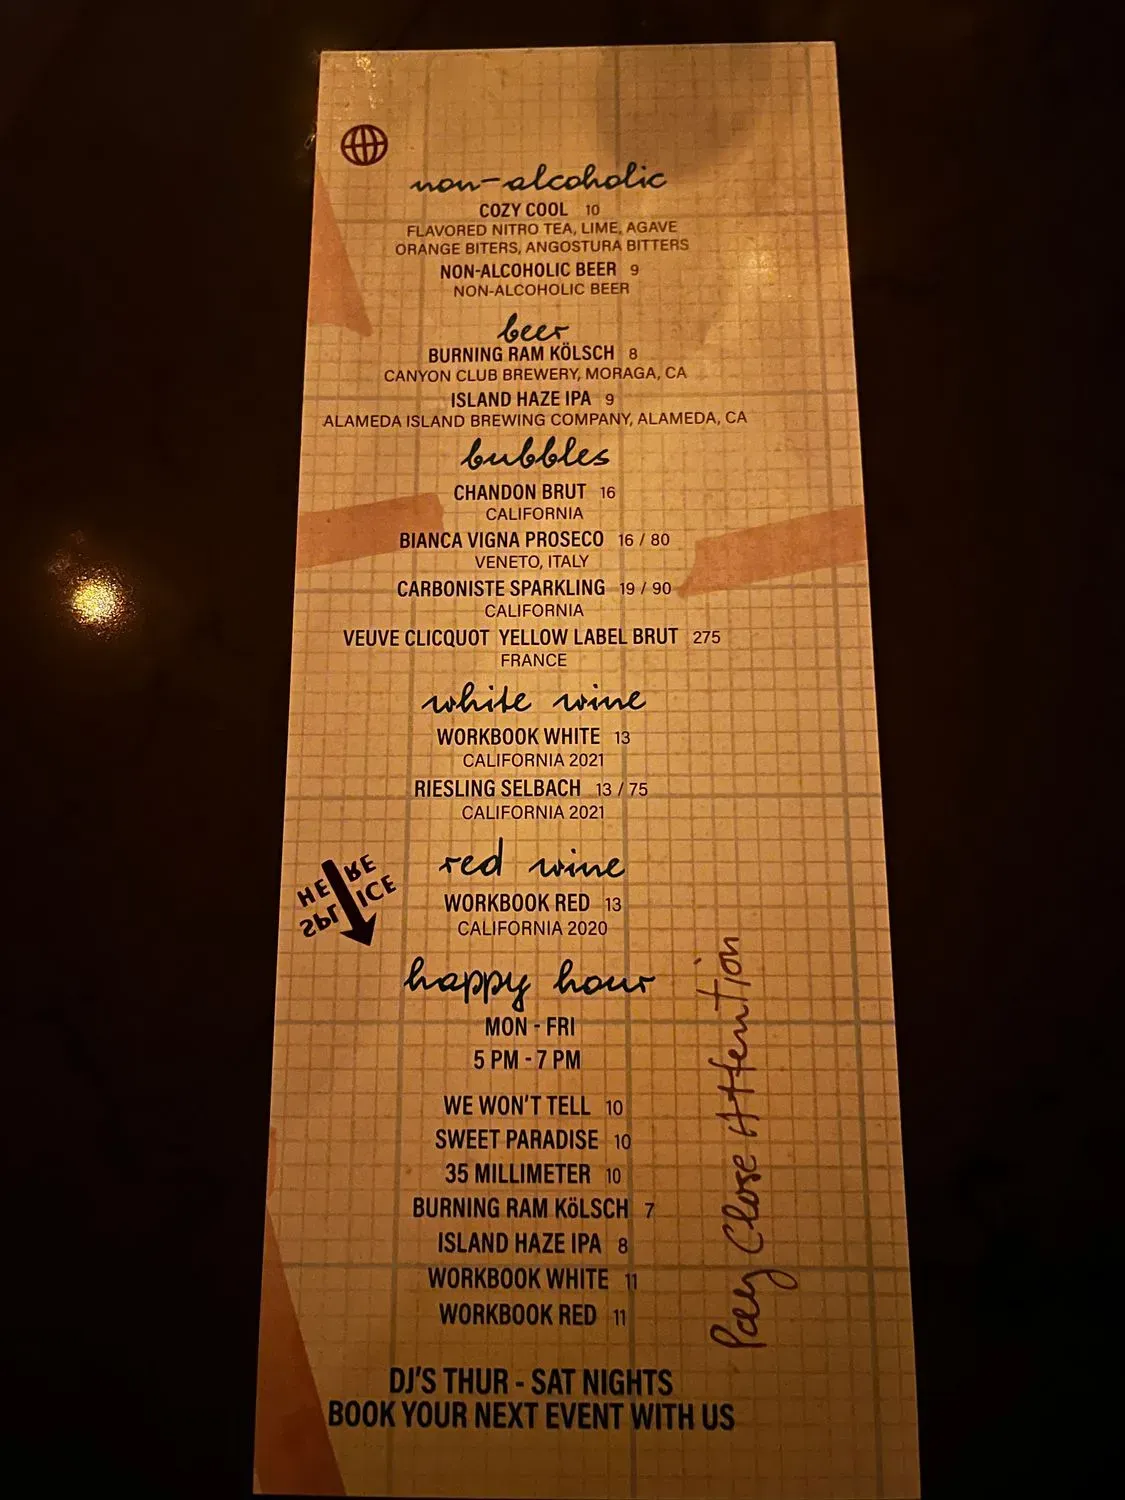 non-alcoholic
COZY COOL 10
FLAVORED NITRO TEA, LIME, AGAVE
ORANGE BITERS, ANGOSTURA BITTERS
NON-ALCOHOLIC BEER 9
NON-ALCOHOLIC BEER
beer
BURNING RAM KÖLSCH 8
CANYON CLUB BREWERY, MORAGA, CA
ISLAND HAZE IPA 9
ALAMEDA ISLAND BREWING COMPANY, ALAMEDA, CA
bubbles
CHANDON BRUT 16
CALIFORNIA
BIANCA VIGNA PROSECO 16 / 80
VENETO, ITALY
CARBONISTE SPARKLING 19 / 90
CALIFORNIA
VEUVE CLICQUOT YELLOW LABEL BRUT 275
FRANCE
white wine
WORKBOOK WHITE 13
CALIFORNIA 2021
RIESLING SELBACH 13 / 75
CALIFORNIA 2021
red wine
WORKBOOK RED 13
CALIFORNIA 2020
SPLICE
HERE
happy hour
MON - FRI
5 PM - 7 PM
WE WON'T TELL 10
SWEET PARADISE 10
35 MILLIMETER 10
BURNING RAM KöLSCH 7
ISLAND HAZE IPA 8
WORKBOOK WHITE 11
WORKBOOK RED 11
Pay Close Attention
DJ'S THUR - SAT NIGHTS
BOOK YOUR NEXT EVENT WITH US